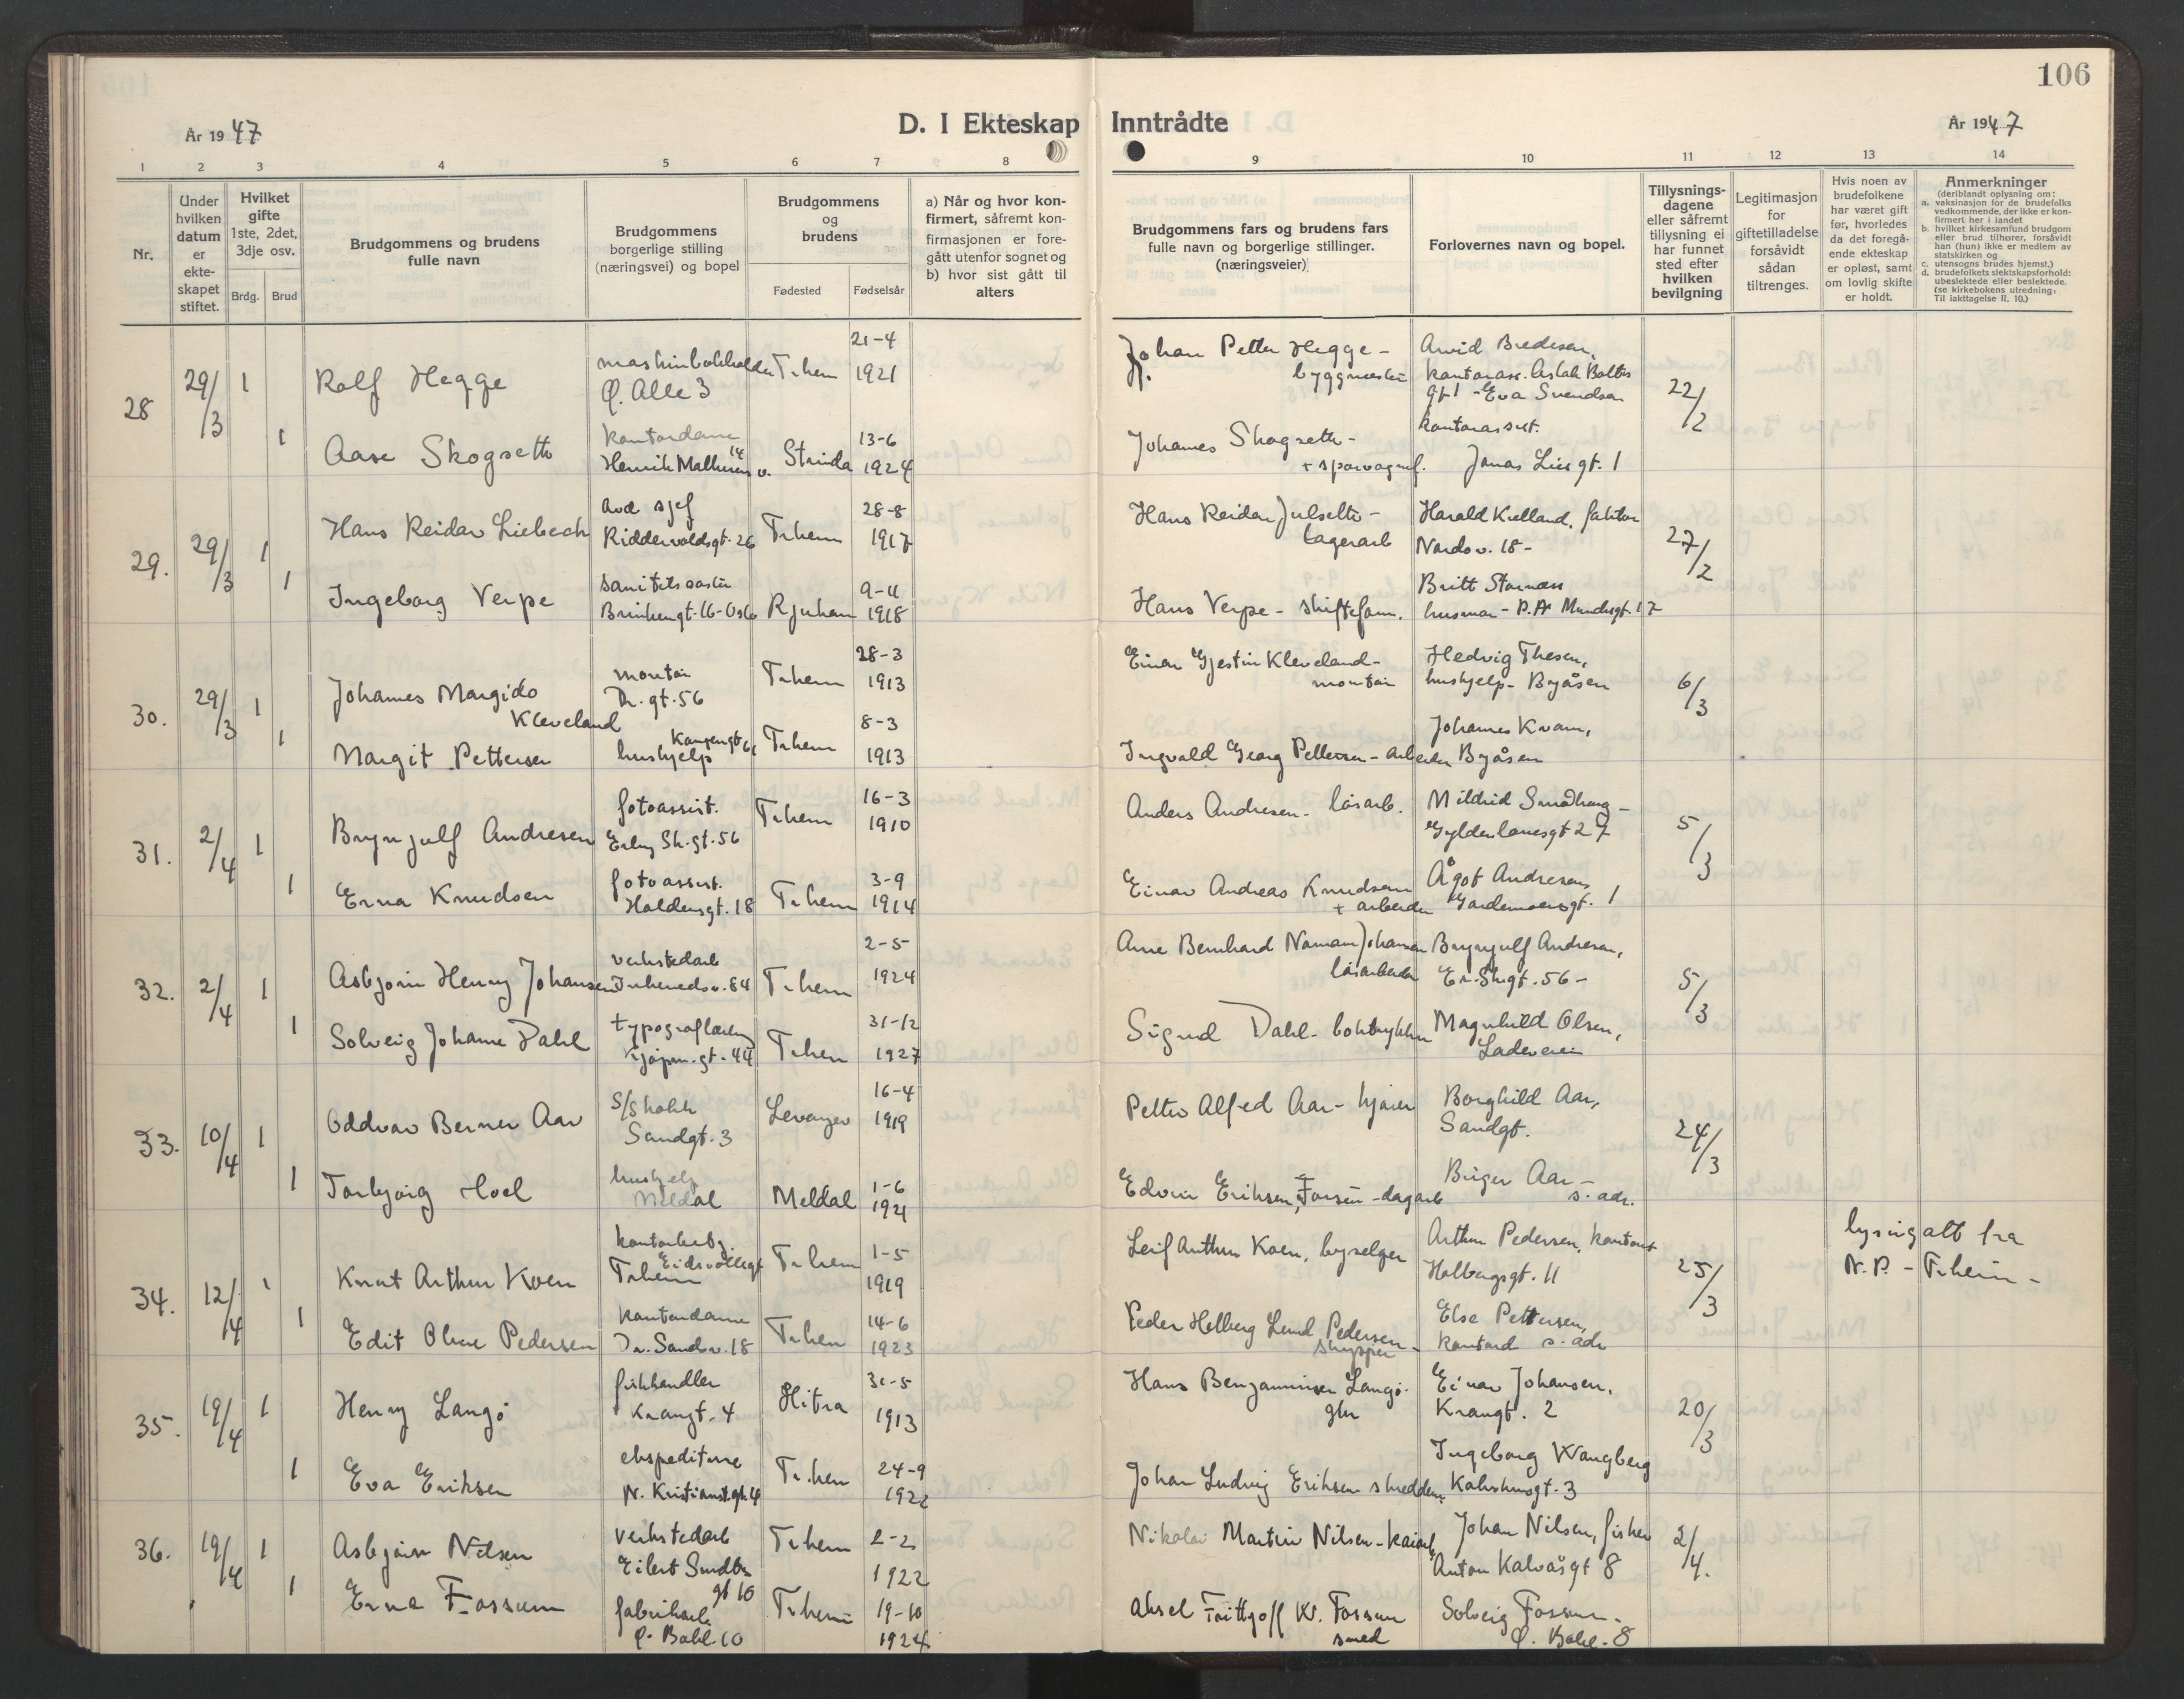 106
År 1947
D. I Ekteskap Inntrådte
År 1947
1 2 3 4 5 6 7 8 9 10 11 12 13 14
Nr.
Under hvilken datum er ekteskapet stiftet.
Hvilket gifte 1ste, 2det, 3dje osv.
Brdg. Brud
Brudgommens og brudens fulle navn
Brudgommens borgerlige stilling (næringsvei) og bopel
Brudgommens og brudens
Fødested Fødselsår
a) Når og hvor konfirmert, såfremt konfirmasjonen er foregått utenfor sognet og b) hvor sist gått til alters
Brudgommens fars og brudens fars fulle navn og borgerlige stillinger. (næringsveier)
Forlovernes navn og bopel.
Tillysningsdagene eller såfremt tillysning ei har funnet sted efter hvilken bevilgning
Legitimasjon for giftetilladelse forsåvidt sådan tiltrenges.
Hvis noen av brudefolkene har været gift før, hvorledes da det foregående ekteskap er opløst, samt om lovlig skifte er holdt.
Anmerkninger
(deriblandt oplysning om:
a. vaksinasjon for de brudefolks vedkommende, der ikke er konfirmert her i landet
b. hvilket kirkesamfund brudgom eller brud tilhører, forsåvidt han (hun) ikke er medlem av statskirken og
c. utensogns brudes hjemst.)
d. brudefolkets slektskapsforhold: ubeslektede eller beslektede.
(se kirkebokens utredning: Til iakttagelse II. 10.)
28 29/3 1 Rolf Hegge
maskinbokholder Ø. Alle 3
T.hem 21-4 1921
Johan Petter Hegge - byggmester
Arvid Bredesen,
kontorass. Aslak Bolts
gt 1 - Eva Svendsen
kontorassist.
Jonas Lies gt. 1
22/2
1 Aase Skogseth
kontordame
Henrik Mathesens v. 14
Strinda 13-6 1924
Johannes Skogseth -
+ sporvognsf.
29. 29/3 1 Hans Reidar Liebech
avd sjef
Riddervoldsgt. 26
T.hem 28-8 1917
Hans Reidar Julseth -
lagerarb
Harald Kielland, faktor
Nardov. 18 -
27/2
1 Ingeborg Verpe
16 - Oslo
Rjukan 9-11 1918
Hans Verpe - skiftefom.
Britt Stornæss
husmor - P. A. Munchsgt. 17
30. 29/3 1 Johannes Margido Kleveland
montør
Dr. gt. 56
T.hem 28-3 1913
Einar Gjestin Kleveland -
montør
Hedvig Thesen,
hushjelp - Byåsen
6/3
1 Margit Pettersen
hushjelp
T.hem 8-3 1913
Ingvald Georg Pettersen - arbeider
Johannes Kvam,
Byåsen
31. 2/4 1 Brynjulf Andresen
fotoassist.
Erling Sk. gt. 56
T.hem 16-3 1910
Anders Andresen - løsarb.
Mildrid Smådhaug -
Gyldenløvesgt 27
5/3
1 Erna Knudsen
fotoassist.
Haldensgt. 18
T.hem 3-9 1914
Einar Andreas Knudsen
+ arbeider
Ågot Andresen,
Gardemoensgt. 1
32. 2/4 1 Asbjørn Henry Johansen
verkstedarb
Inherredsv. 84
T.hem 2-5 1924
Arne Bernhard Johansen
løsarbeider
Brynjulf Andresen,
Er. Skgt. 56 -
5/3
1 Solveig Johanne Dahl
typograflærling
Kjøpm. gt. 44
T.hem 31-12 1927
Sigurd Dahl - boktrykker
Magnhild Olsen,
Ladeveien
33. 10/4 1 Oddvar Berner Aar
S/S kokk
Sandgt. 3
Levanger 16-4 1919
Petter Alfred Aar - kjører
Borghild Aar,
Sandgt.
24/3
1 Torbjørg Hoel
hushjelp
Meldal
Meldal 1-6 1921
Edvin Eriksen, Forsen - dagarb
Birger Aar -
s. adr.
34. 12/4 1 Knut Arthur Koen
Eidsvollsgt
T.hem
T.hem 1-5 1919
Leif Arthur Koen, byselger
Arthur Pedersen, kontorist
Holbergsgt. 11
25/3
lysing att fra
N. P. - T.heim -
1 Edit Olene Pedersen
kontordame
Dr. Sandsv. 18
T.hem 14-6 1923
Peder Helberg Lund Pedersen -
skipper
Else Pettersen,
kontord s. adr
35. 19/4 1 Henry Langø
fiskhandler
Krangt. 4
Hitra 31-5 1913
Hans Benjaminsen Langø -
gbr
Einar Johansen,
Krangt. 2
20/3
1 Eva Eriksen
ekspeditrise
N. Kristianst. gt. 4
T.hem 24-9 1922
Johan Ludvig Eriksen skredder
Ingeborg Wangberg
3
36. 19/4 1 Asbjørn Nilsen
verkstedarb
Eilert Sundtsgt 10
T.hem 2-2 1922
Nikolai Martin Nilsen - kaiarb
Johan Nilsen, fisker
Anton Kalvåsgt 8
2/4.
1 Erna Fossum
fabrikarb.
Ø. Bakl. 10
T.hem 19-10 1924
Aksel Fritthjoff Kr. Fossum
smed
Solveig Fossum -
Ø. Bakl. 8